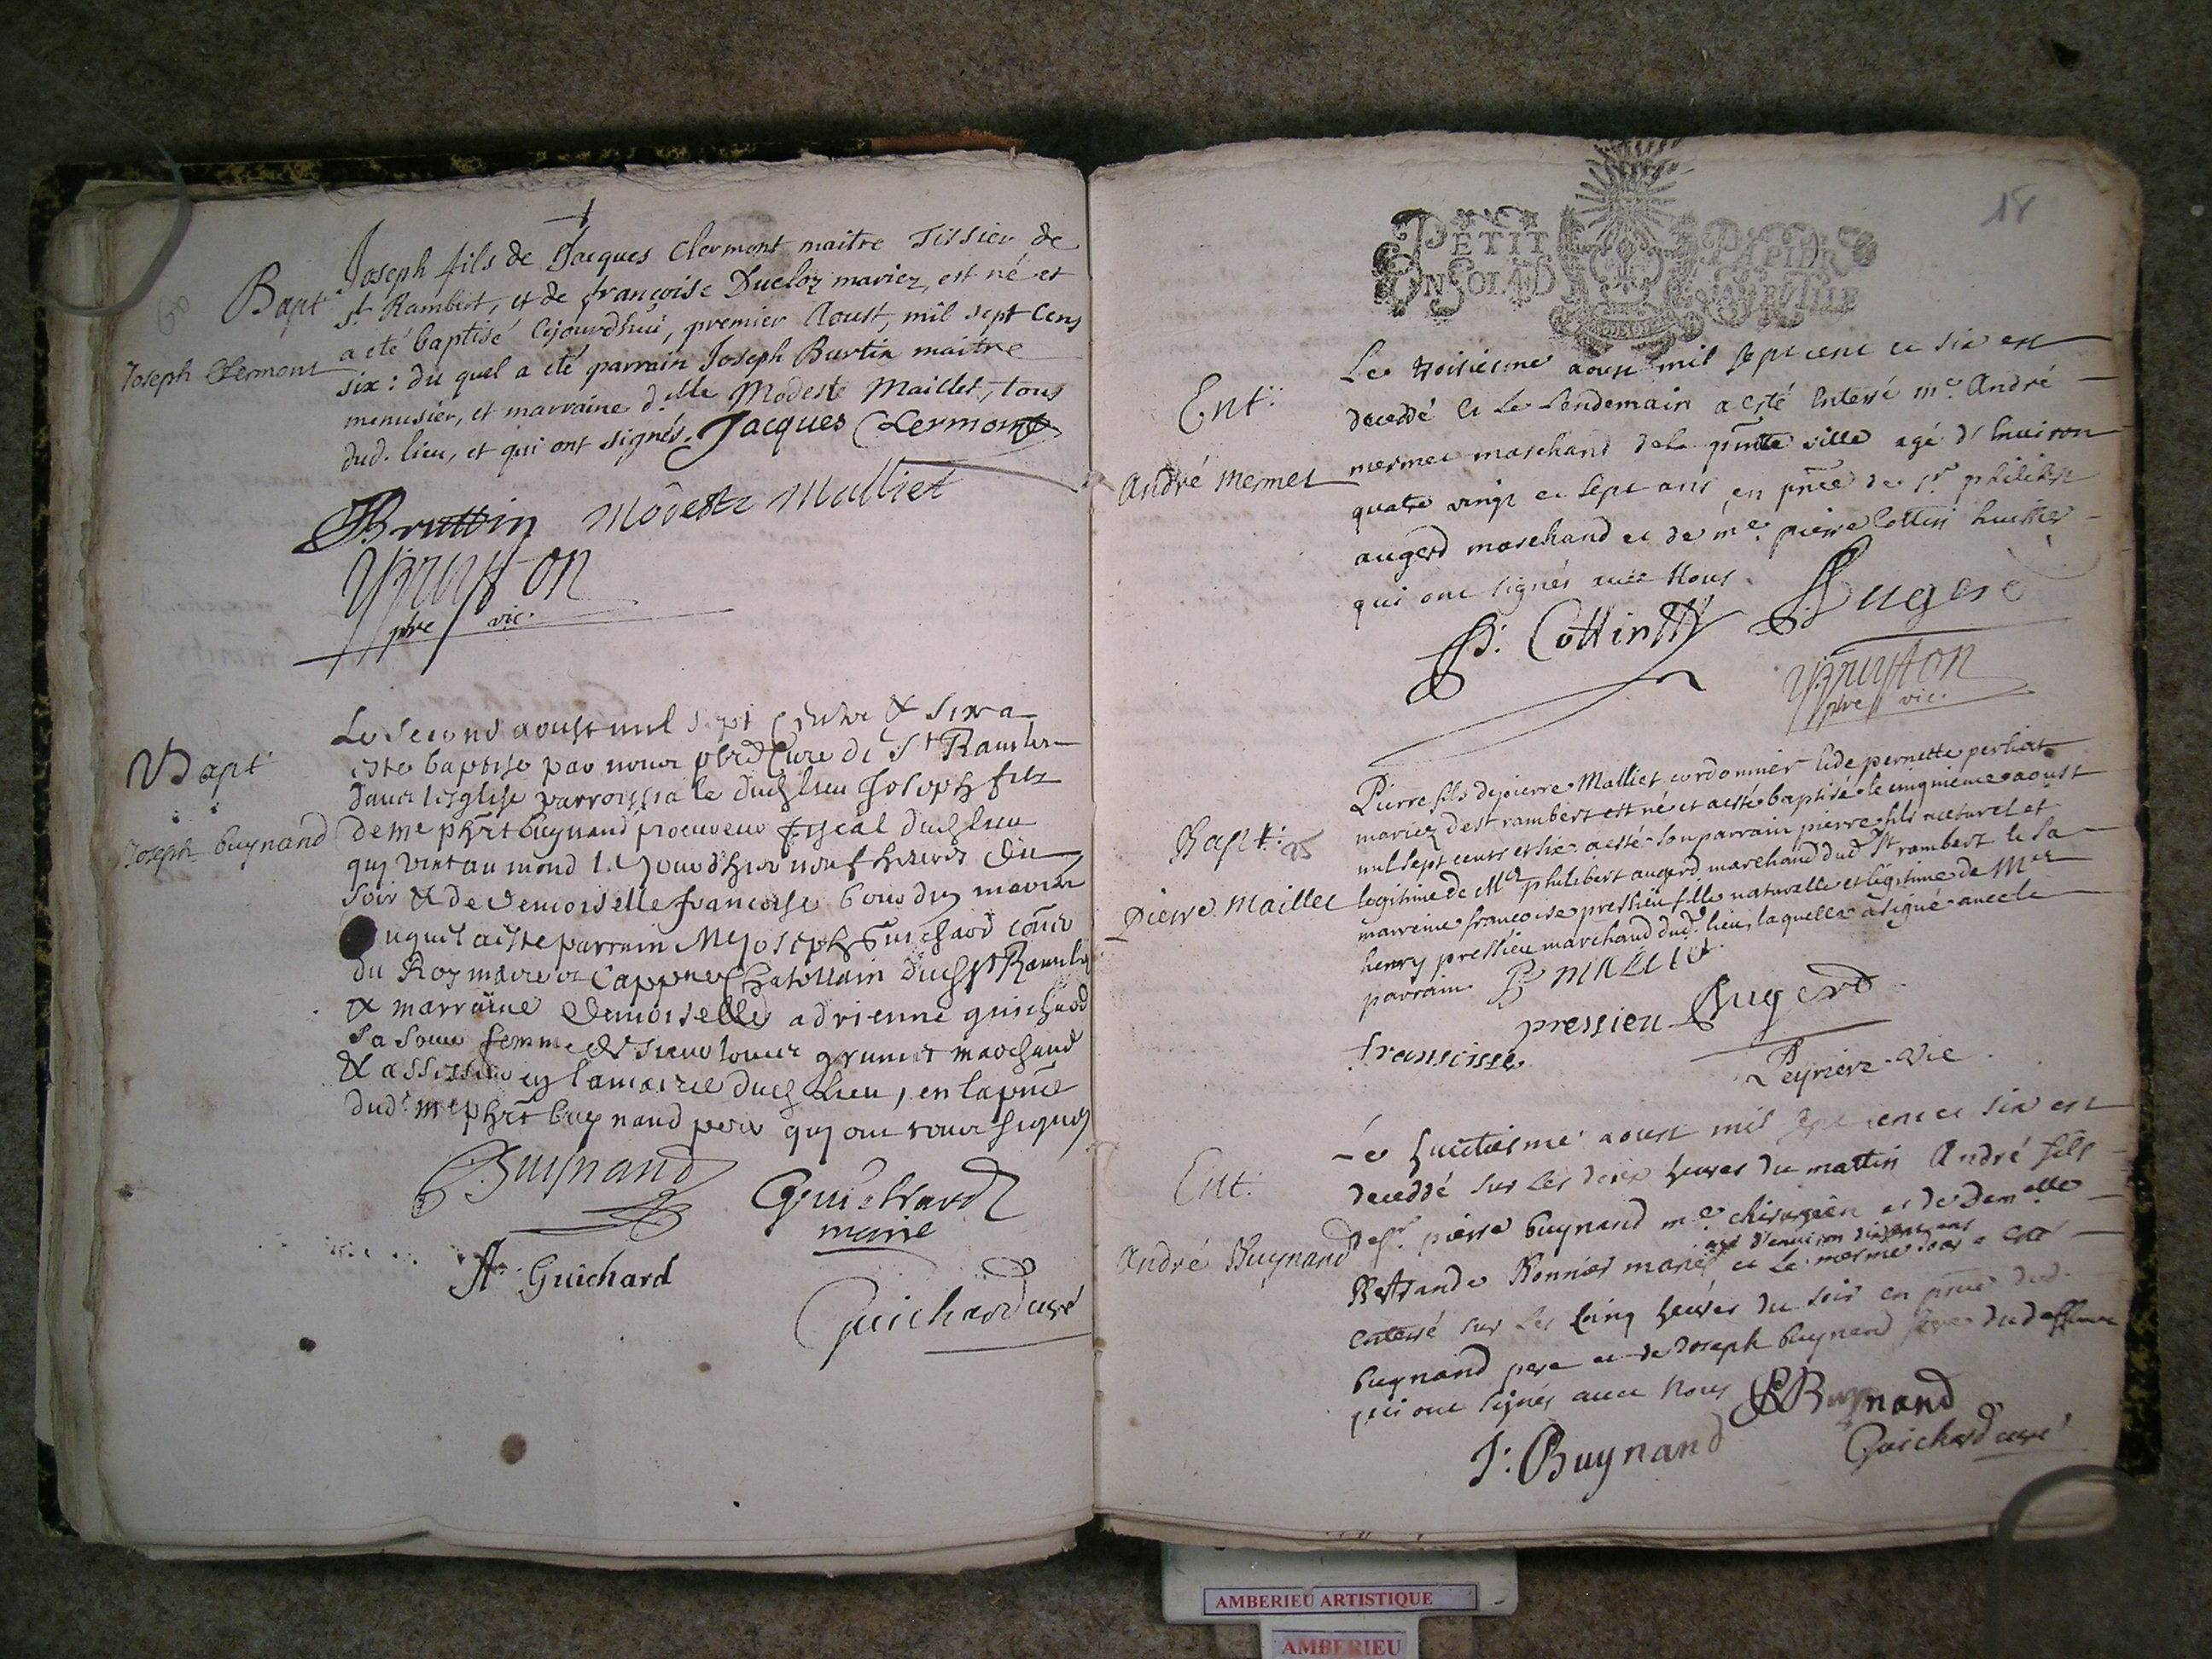 Bapt
Joseph Clermont
Joseph fils de Jacques Clermont maitre Tissier de
St Rambert, et de françoise Ducloz mariez, est né et
a eté baptisé cejourdhui, premier Aoust, mil sept Cens
six: du quel a eté parrain Joseph Burtin maitre
menusier, et marraine d.lle Modeste Maillet, tous
dud. lieu, et qui ont signés. Jacques Clermont
Bruttin Modeste Malliet
pbre vic.
Bapt
Joseph buynand
Le second aoust mil sept Cents & six a
este baptise par nous Cure de St Rambert
dans leglise parroissiale dud lieu Joseph fils
de me buynand procureur fiscal dud lieu
quy vint au mond neuf heures du
soir & de demoiselle francoise mariez
uquel a este parrain Me Joseph Guichard
du Roy maire et Cappne Chatellain dud St Rambert
& marraine demoiselle adrienne guichard
sa soeur femme de sieur marchand
& assesseur en la mairie dud Lieu, en la pnce
dud. me buynand pere quy ont tous signés
Buynand Guichard
maire
A Guichard
Guichard curé
18
PETIT PAPIER
Ent.
André Mermet
Le troisiesme aoust mil sept cent et six est
decedé et le lendemain a esté enterré me. André
mermet marchand de la pnte ville agé d'environ
quatre vingt et sept ans en pnce de sr philibert
augerd marchand et de me. pierre Cottin huissier
qui ont signés avec Nous.
Cottin Augerd
pbre vic.
Bapt.
25
Pierre Maillet
Pierre fils de pierre Malliet cordonnier et de pernette
mariez de st rambert est né et a esté baptisé le cinquieme aoust
mil sept cents et six. a esté son parrain pierre fils naturel et
legitime de Mr philibert augerd marchand dud St rambert et sa
marreine francoise pressieu fille naturelle et legitime de Mr
henry pressieu marchand dud. lieu, laquelle a signé avec le
parrain P MALLIET
fransoisse pressieu Augerd
Peyrieu vic.
Ent.
André Buynand
Le huictiesme aoust mil sept cent et six est
decedé sur les deux heures du mattin André fils
de sr. pierre buynand me. chirurgien et de Demelle
Bertrande Bonnier mariés et le mesme jour a esté
agé d'environ ans
enterré sur les cinq heures du soir en pnce dud.
buynand pere et de Joseph buynand frere dud deffunt
qui ont signés avec Nous PBuynand
J: Buynand Guichard curé
AMBERIEU ARTISTIQUE
AMBERIEU